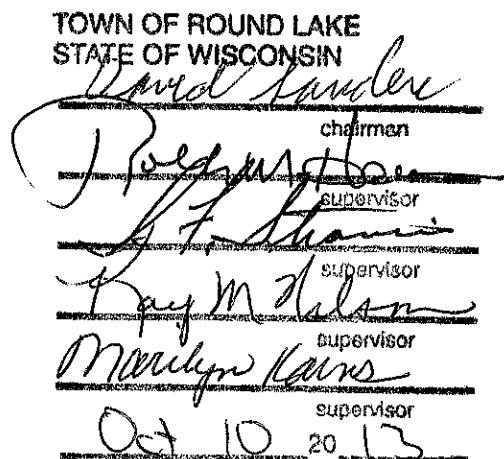 TOWN OF ROUND LAKE
STATE OF WISCONSIN
David Sanders
chairman
supervisor
supervisor
Kay M Wilson
supervisor
Marilyn Karns
supervisor
Oct 10 20 13